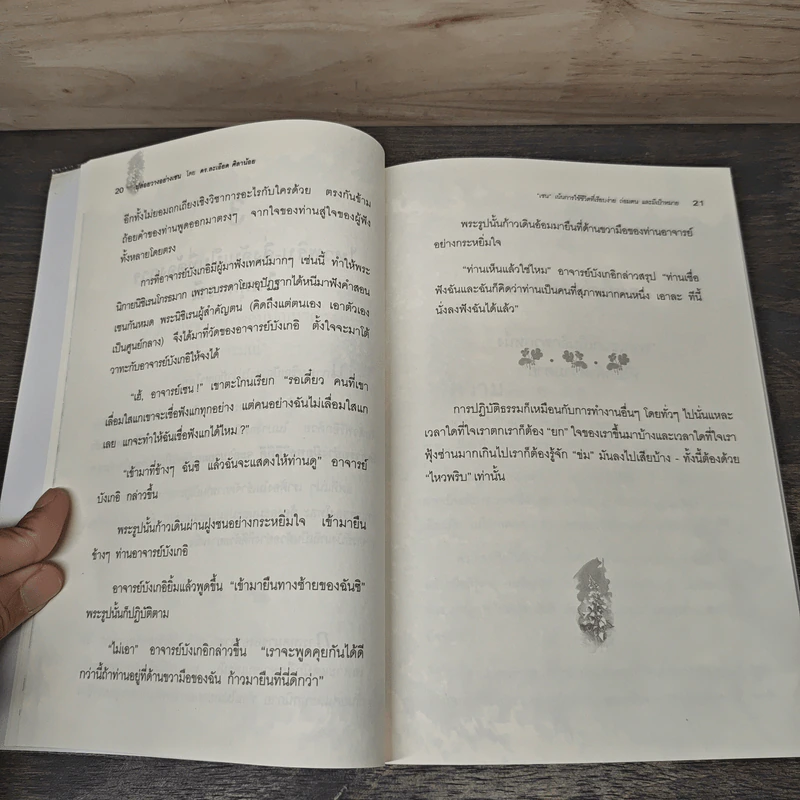 20 ปล่อยวางอย่างเซน โดย ดร.ละเอียด ศิลาน้อย
อีกทั้งไม่ยอมถกเถียงเชิงวิชาการอะไรกับใครด้วย ตรงกันข้าม
ถ้อยคำของท่านพูดออกมาตรงๆ จากใจของท่านสู่ใจของผู้ฟัง
ทั้งหลายโดยตรง
การที่อาจารย์บังเกอิมีผู้มาฟังเทศน์มากๆ เช่นนี้ ทำให้พระ
นิกายนิชิเรนโกรธมาก เพราะบรรดาโยมอุปัฏฐากได้หนีมาฟังคำสอน
เซนกันหมด พระนิชิเรนผู้สำคัญตน (คิดถึงแต่ตนเอง เอาตัวเอง
เป็นศูนย์กลาง) จึงได้มาที่วัดของอาจารย์บังเกอิ ตั้งใจจะมาโต้
วาทะกับอาจารย์บังเกอิให้จงได้
“เฮ้, อาจารย์เซน!” เขาตะโกนเรียก “รอเดี๋ยว คนที่เขา
เลื่อมใสแกเขาจะเชื่อฟังแกทุกอย่าง แต่คนอย่างฉันไม่เลื่อมใสแก
เลย แกจะทำให้ฉันเชื่อฟังแกได้ไหม?”
“เข้ามาที่ข้างๆ ฉันซิ แล้วฉันจะแสดงให้ท่านดู” อาจารย์
บังเกอิ กล่าวขึ้น
พระรูปนั้นก้าวเดินผ่านฝูงชนอย่างกระหยิ่มใจ เข้ามายืน
ข้างๆ ท่านอาจารย์บังเกอิ
อาจารย์บังเกอิยิ้มแล้วพูดขึ้น “เข้ามายืนทางซ้ายของฉันซิ”
พระรูปนั้นก็ปฏิบัติตาม
“ไม่เอา” อาจารย์บังเกอิกล่าวขึ้น “เราจะพูดคุยกันได้ดี
กว่านี้ถ้าท่านอยู่ที่ด้านขวามือของฉัน ก้าวมายืนที่นี่ดีกว่า”
“เซน” เน้นการใช้ชีวิตที่เรียบง่าย ถ่อมตน และมีเป้าหมาย 21
พระรูปนั้นก้าวเดินอ้อมมายืนที่ด้านขวามือของท่านอาจารย์
อย่างกระหยิ่มใจ
“ท่านเห็นแล้วใช่ไหม” อาจารย์บังเกอิกล่าวสรุป “ท่านเชื่อ
ฟังฉันและฉันก็คิดว่าท่านเป็นคนที่สุภาพมากคนหนึ่ง เอาละ ทีนี้
นั่งลงฟังฉันได้แล้ว”
การปฏิบัติธรรมก็เหมือนกับการทำงานอื่นๆ โดยทั่วๆ ไปนั่นแหละ
เวลาใดที่ใจเราตกเราก็ต้อง “ยก” ใจของเราขึ้นมาบ้างและเวลาใดที่ใจเรา
ฟุ้งซ่านมากเกินไปเราก็ต้องรู้จัก “ข่ม” มันลงไปเสียบ้าง - ทั้งนี้ต้องด้วย
“ไหวพริบ” เท่านั้น